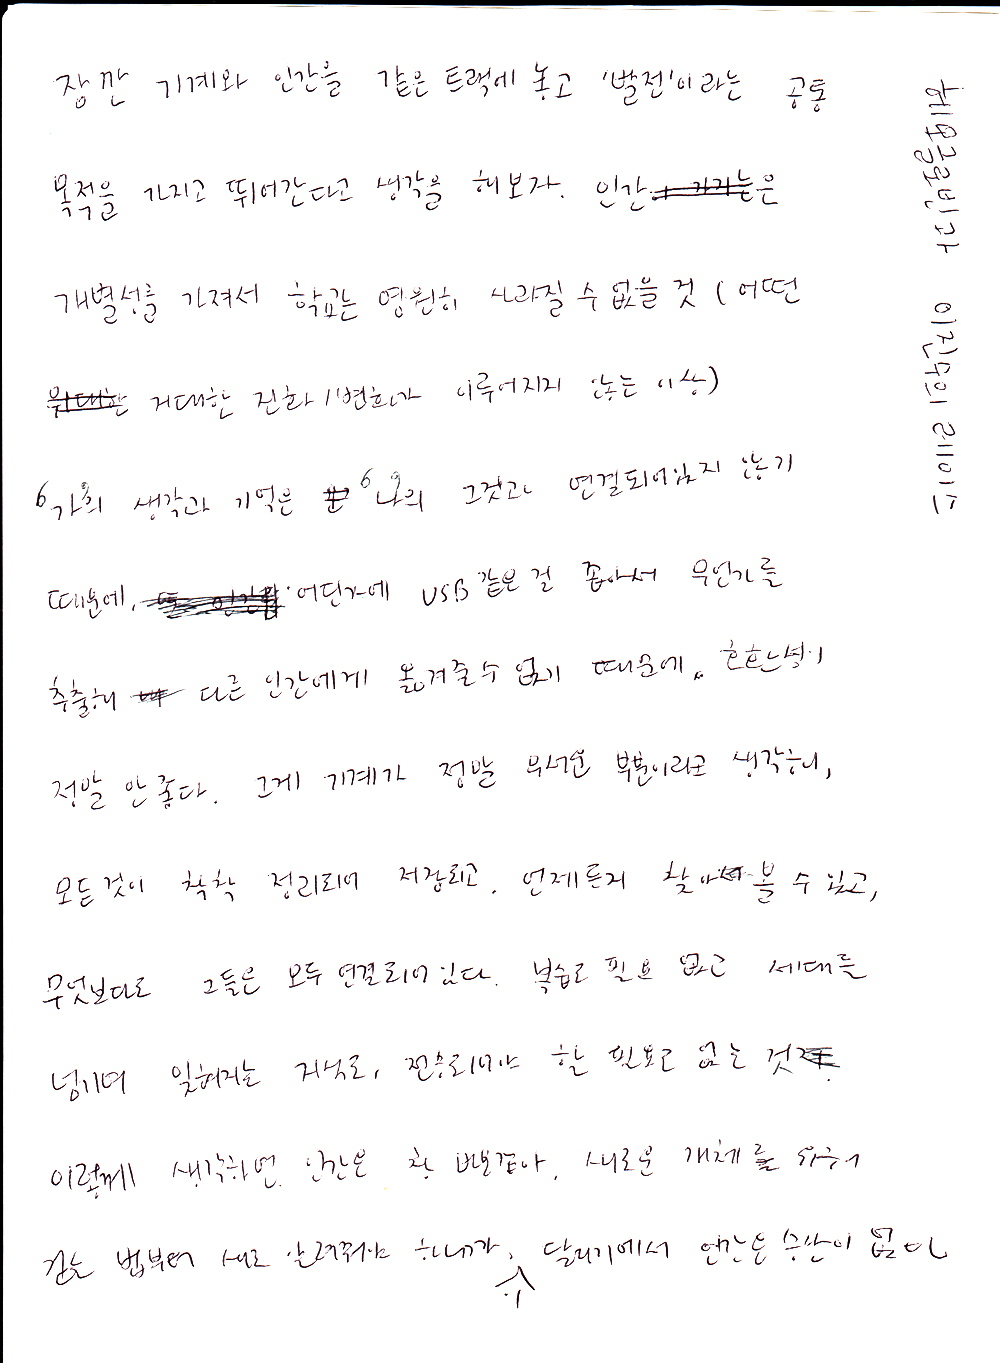 헤모글로빈과 이진수의 레이스
잠깐 기계와 인간을 같은 트랙에 놓고 '발전'이라는 공통
목적을 가지고 뛰어간다고 생각을 해보자. 인간은
개별성를 가져서 학교는 영원히 사라질 수 없을 것 (어떤
위대한 거대한 진화/변화가 이루어지지 않는 이상)
'가'의 생각과 기억은 '나'의 그것과 연결되어있지 않기
때문에, 어딘가에 USB 같은 걸 꼽아서 무언가를
추출해 다른 인간에게 옮겨줄 수 없기 때문에. 효율성이
정말 안 좋다. 그게 기계가 정말 무서운 부분이라고 생각해,
모든것이 착착 정리되어 저장되고. 언제든지 찾아볼 수 있고,
무엇보다도 그들은 모두 연결되어 있다. 복습도 필요 없고 세대를
넘기며 잊혀지는 지식도, 전승되어야 할 필요도 없는 것
이렇게 생각하면 인간은 참 바보같아. 새로운 개체를 키워
걷는 법부터 새로 알려줘야 하니까, 달리기에서 인간은 승산이 없다